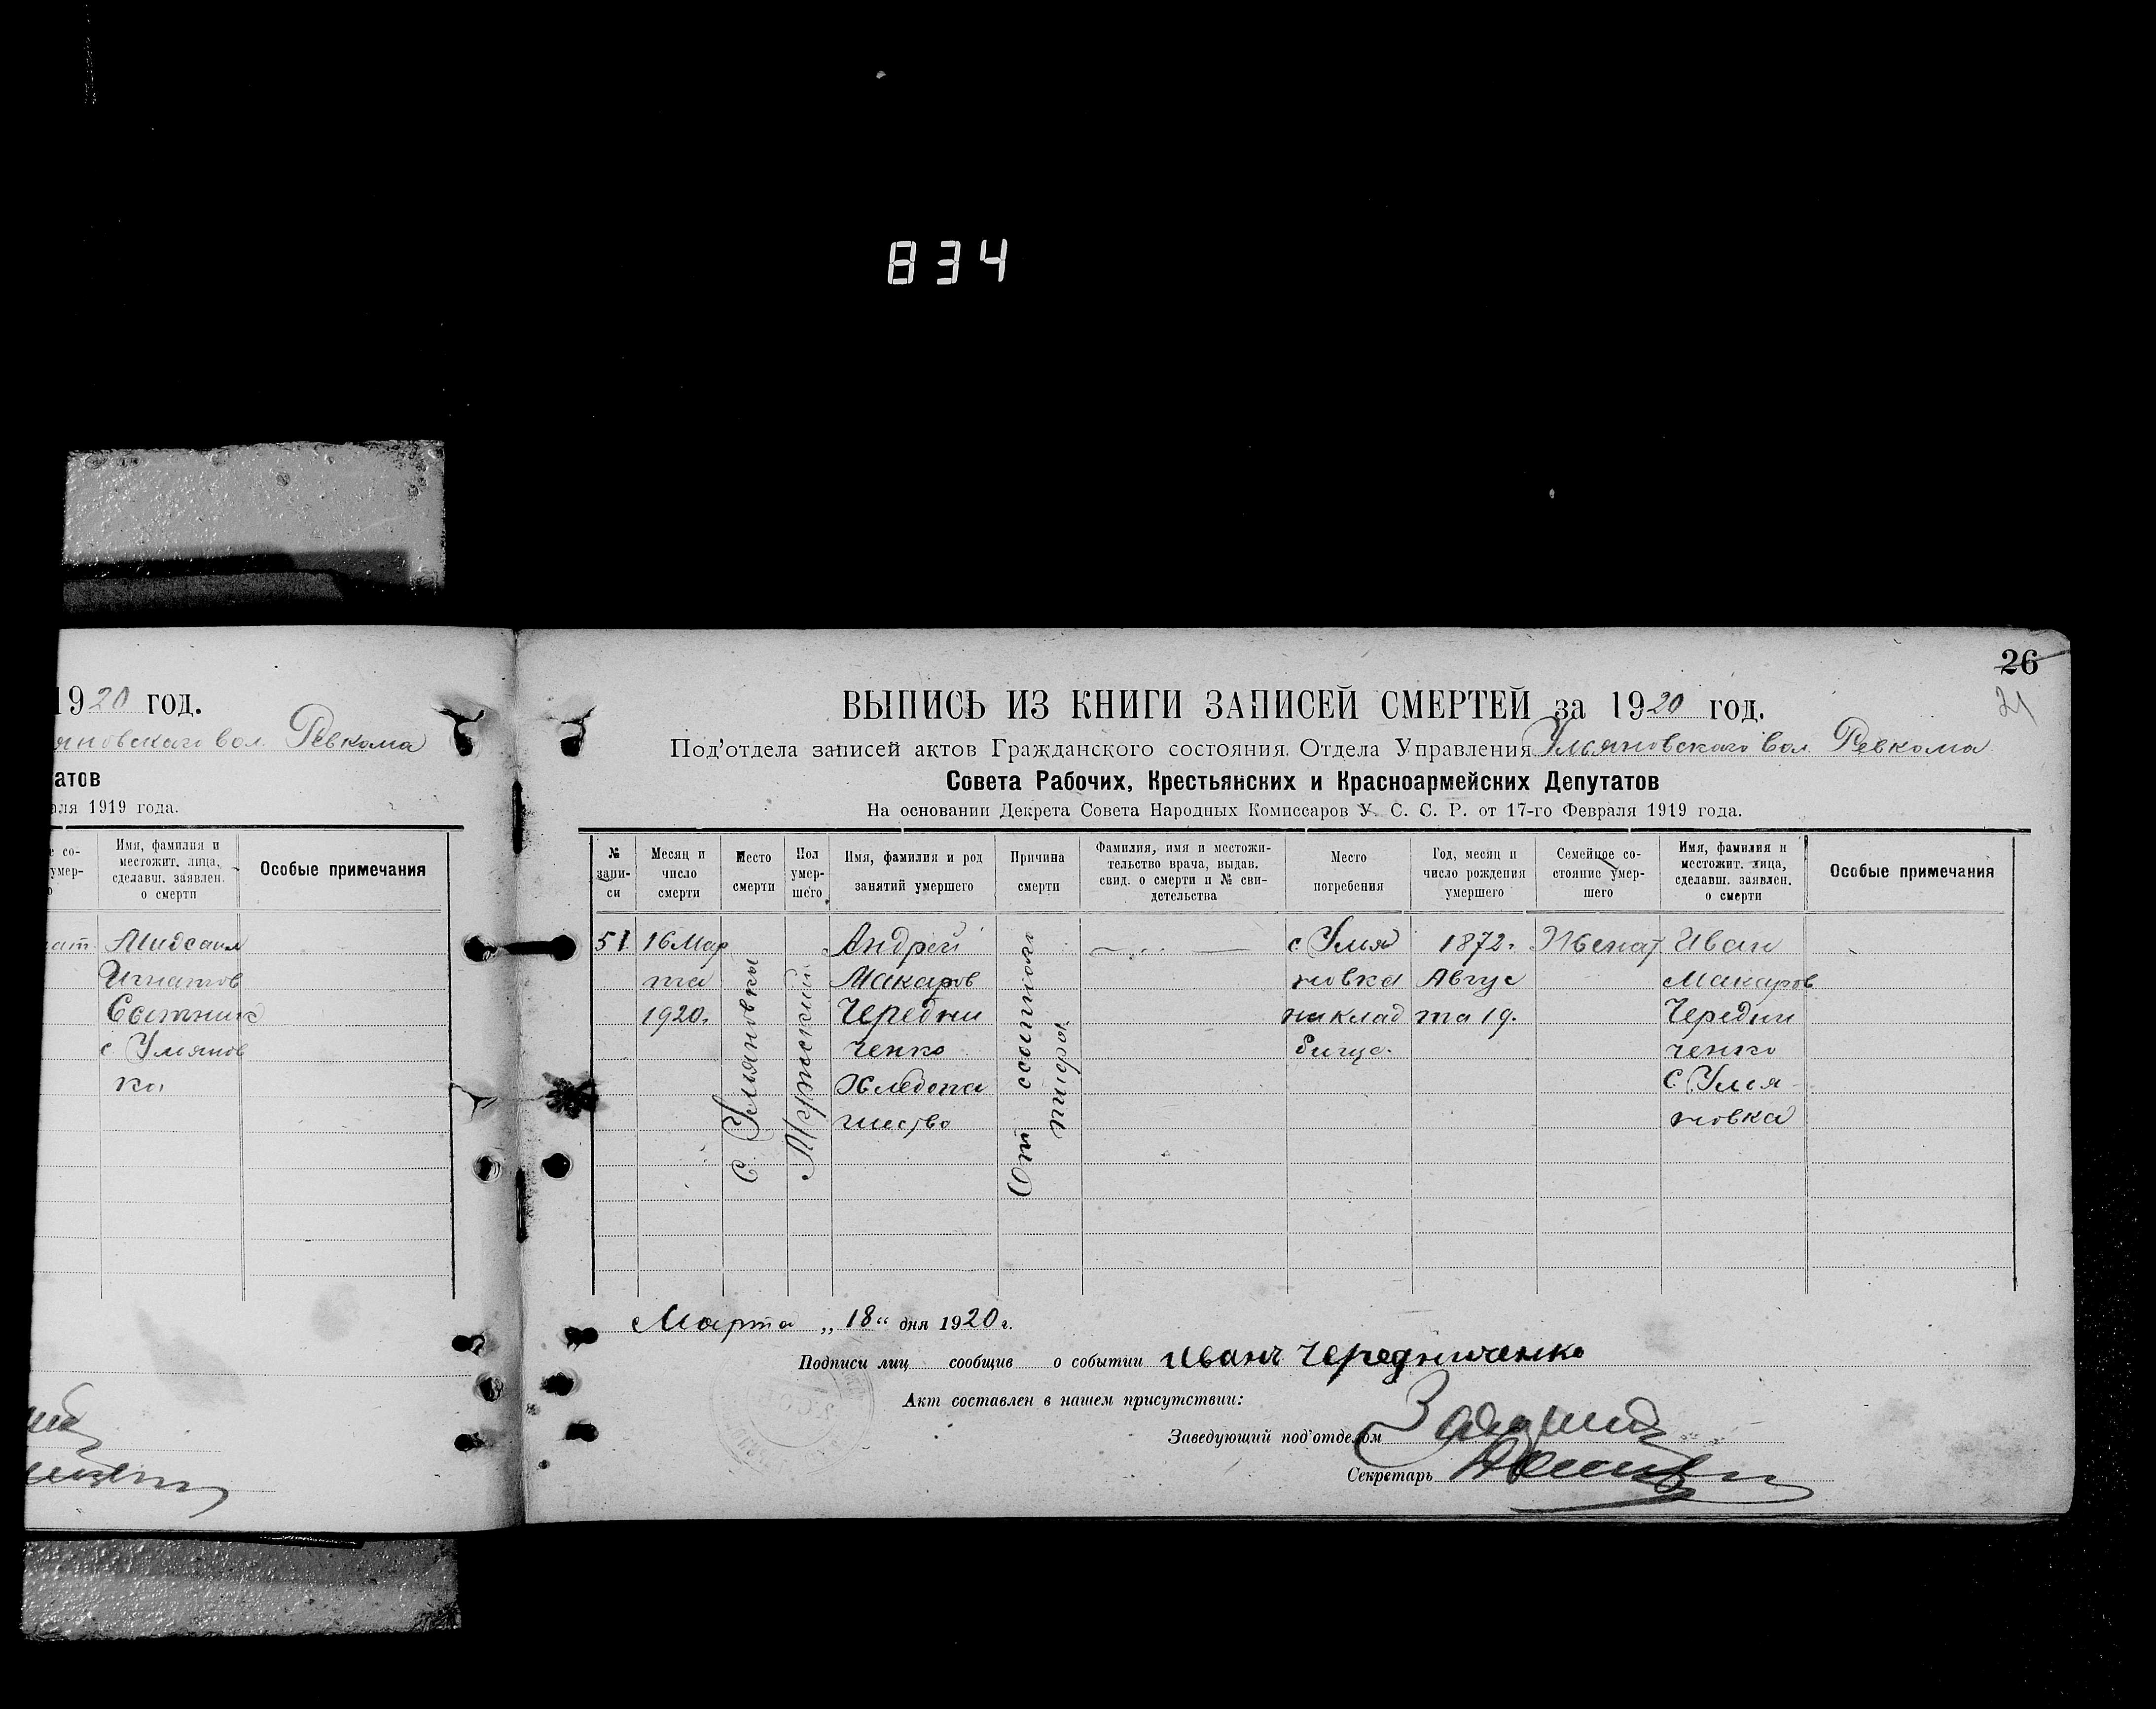 834
1920 год.
яновскаго вол. Ревкома
атов
аля 1919 года.
Имя, фамилия и
местожит. лица,
сделавш. заявлен.
о смерти
Особые примечания
Игнатов
с. Улянов
ка,
26
21
ВЫПИСЬ ИЗ КНИГИ ЗАПИСЕЙ СМЕРТЕЙ за 1920 год.
Под'отдела записей актов Гражданского состояния. Отдела Управления Ульяновскаго вол. Ревкома
Совета Рабочих, Крестьянских и Красноармейских Депутатов
На основании Декрета Совета Народных Комиссаров У. С. С. Р. от 17-го Февраля 1919 года.
№
запи-
си
Месяц и
число
смерти
Место
смерти
Пол
умер-
шего
Имя, фамилия и род
занятий умершего
Причина
смерти
Фамилия, имя и местожи-
тельство врача, выдав.
свид. о смерти и № сви-
детельства
Место
погребения
Год, месяц и
число рождения
умершего
Семейное со-
стояние умер-
шего
Имя, фамилия и
местожит. лица,
сделавш. заявлен.
о смерти
Особые примечания
51
16 Мар
та
1920.
с. Уляновки
Мужский
Андрей
Макаров
Чередни
ченко
Хлебопа
шество
От сыпного
тифа
с. Уля
новка
на клад
бище.
1872.
Авгус
та 19.
Женат
Иван
Макаров
Чередни
ченко
С. Уля
новка
Марта „18“ дня 1920 г.
Подписи лиц сообщив о событии Иванъ Чередниченко
Акт составлен в нашем присутствии:
Заведующий под'отделом
Секретарь